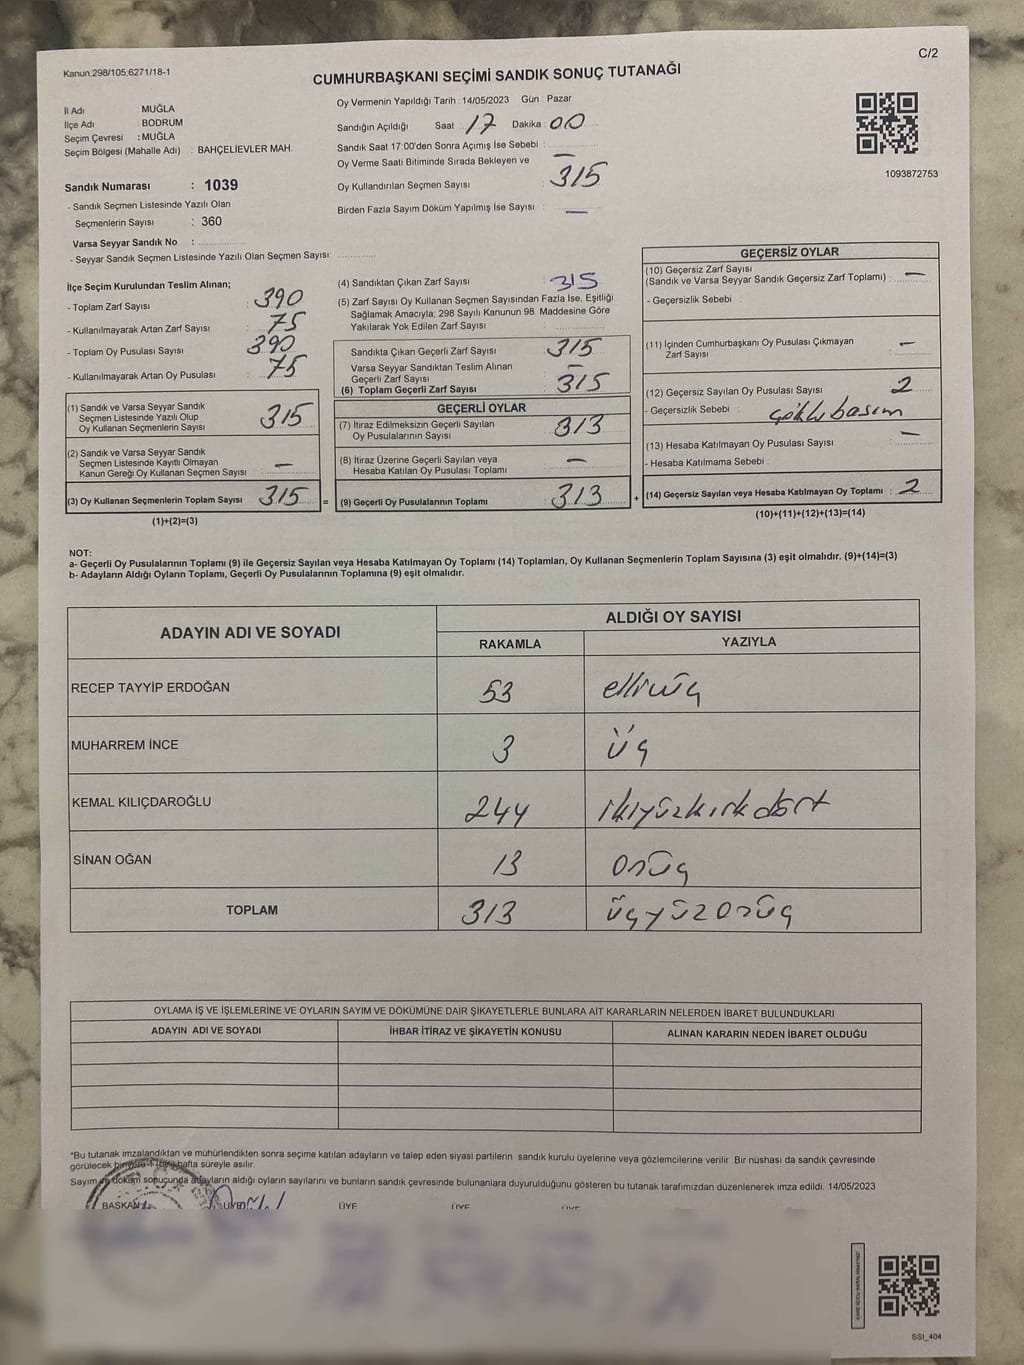 Kanun:298/105;6271/18-1
C/2
CUMHURBAŞKANI SEÇİMİ SANDIK SONUÇ TUTANAĞI
İl Adı : MUĞLA
İlçe Adı : BODRUM
Seçim Çevresi : MUĞLA
Seçim Bölgesi (Mahalle Adı) : BAHÇELİEVLER MAH.
Sandık Numarası : 1039
- Sandık Seçmen Listesinde Yazılı Olan
Seçmenlerin Sayısı : 360
Varsa Seyyar Sandık No :
- Seyyar Sandık Seçmen Listesinde Yazılı Olan Seçmen Sayısı:
Oy Vermenin Yapıldığı Tarih : 14/05/2023 Gün : Pazar
Sandığın Açıldığı Saat : 17 Dakika : 00
Sandık Saat 17:00'den Sonra Açımış İse Sebebi : —
Oy Verme Saati Bitiminde Sırada Bekleyen ve
Oy Kullandırılan Seçmen Sayısı : 315
Birden Fazla Sayım Döküm Yapılmış İse Sayısı : —
1093872753
İlçe Seçim Kurulundan Teslim Alınan;
- Toplam Zarf Sayısı : 390
- Kullanılmayarak Artan Zarf Sayısı : 75
- Toplam Oy Pusulası Sayısı : 390
- Kullanılmayarak Artan Oy Pusulası : 75
(1) Sandık ve Varsa Seyyar Sandık
Seçmen Listesinde Yazılı Olup
Oy Kullanan Seçmenlerin Sayısı : 315
(2) Sandık ve Varsa Seyyar Sandık
Seçmen Listesinde Kayıtlı Olmayan
Kanun Gereği Oy Kullanan Seçmen Sayısı : —
(3) Oy Kullanan Seçmenlerin Toplam Sayısı : 315 =
(1)+(2)=(3)
(4) Sandıktan Çıkan Zarf Sayısı : 315
(5) Zarf Sayısı Oy Kullanan Seçmen Sayısından Fazla İse, Eşitliği
Sağlamak Amacıyla; 298 Sayılı Kanunun 98. Maddesine Göre
Yakılarak Yok Edilen Zarf Sayısı :
Sandıkta Çıkan Geçerli Zarf Sayısı : 315
Varsa Seyyar Sandıktan Teslim Alınan
Geçerli Zarf Sayısı : —
(6) Toplam Geçerli Zarf Sayısı : 315
GEÇERLİ OYLAR
(7) İtiraz Edilmeksizin Geçerli Sayılan
Oy Pusulalarının Sayısı : 313
(8) İtiraz Üzerine Geçerli Sayılan veya
Hesaba Katılan Oy Pusulası Toplamı : —
(9) Geçerli Oy Pusulalarının Toplamı : 313 +
GEÇERSİZ OYLAR
(10) Geçersiz Zarf Sayısı
(Sandık ve Varsa Seyyar Sandık Geçersiz Zarf Toplamı) : —
- Geçersizlik Sebebi :
(11) İçinden Cumhurbaşkanı Oy Pusulası Çıkmayan
Zarf Sayısı : —
(12) Geçersiz Sayılan Oy Pusulası Sayısı : 2
- Geçersizlik Sebebi : çoklu basım
(13) Hesaba Katılmayan Oy Pusulası Sayısı : —
- Hesaba Katılmama Sebebi :
(14) Geçersiz Sayılan veya Hesaba Katılmayan Oy Toplamı : 2
(10)+(11)+(12)+(13)=(14)
NOT:
a- Geçerli Oy Pusulalarının Toplamı (9) ile Geçersiz Sayılan veya Hesaba Katılmayan Oy Toplamı (14) Toplamları, Oy Kullanan Seçmenlerin Toplam Sayısına (3) eşit olmalıdır. (9)+(14)=(3)
b- Adayların Aldığı Oyların Toplamı, Geçerli Oy Pusulalarının Toplamına (9) eşit olmalıdır.
ADAYIN ADI VE SOYADI
ALDIĞI OY SAYISI
RAKAMLA YAZIYLA
RECEP TAYYİP ERDOĞAN 53 elliüç
MUHARREM İNCE 3 üç
KEMAL KILIÇDAROĞLU 244 ikiyüzkırkdört
SİNAN OĞAN 13 onüç
TOPLAM 313 üçyüzonüç
OYLAMA İŞ VE İŞLEMLERİNE VE OYLARIN SAYIM VE DÖKÜMÜNE DAİR ŞİKAYETLERLE BUNLARA AİT KARARLARIN NELERDEN İBARET BULUNDUKLARI
ADAYIN ADI VE SOYADI İHBAR İTİRAZ VE ŞİKAYETİN KONUSU ALINAN KARARIN NEDEN İBARET OLDUĞU
*Bu tutanak imzalandıktan ve mühürlendikten sonra seçime katılan adayların ve talep eden siyasi partilerin sandık kurulu üyelerine veya gözlemcilerine verilir. Bir nüshası da sandık çevresinde
görülecek bir yere 1 (bir) hafta süreyle asılır.
Sayım ve döküm sonucunda adayların aldığı oyların sayılarını ve bunların sandık çevresinde bulunanlara duyurulduğunu gösteren bu tutanak tarafımızdan düzenlenerek imza edildi. 14/05/2023
BAŞKAN ÜYE ÜYE ÜYE ÜYE
SSI_404